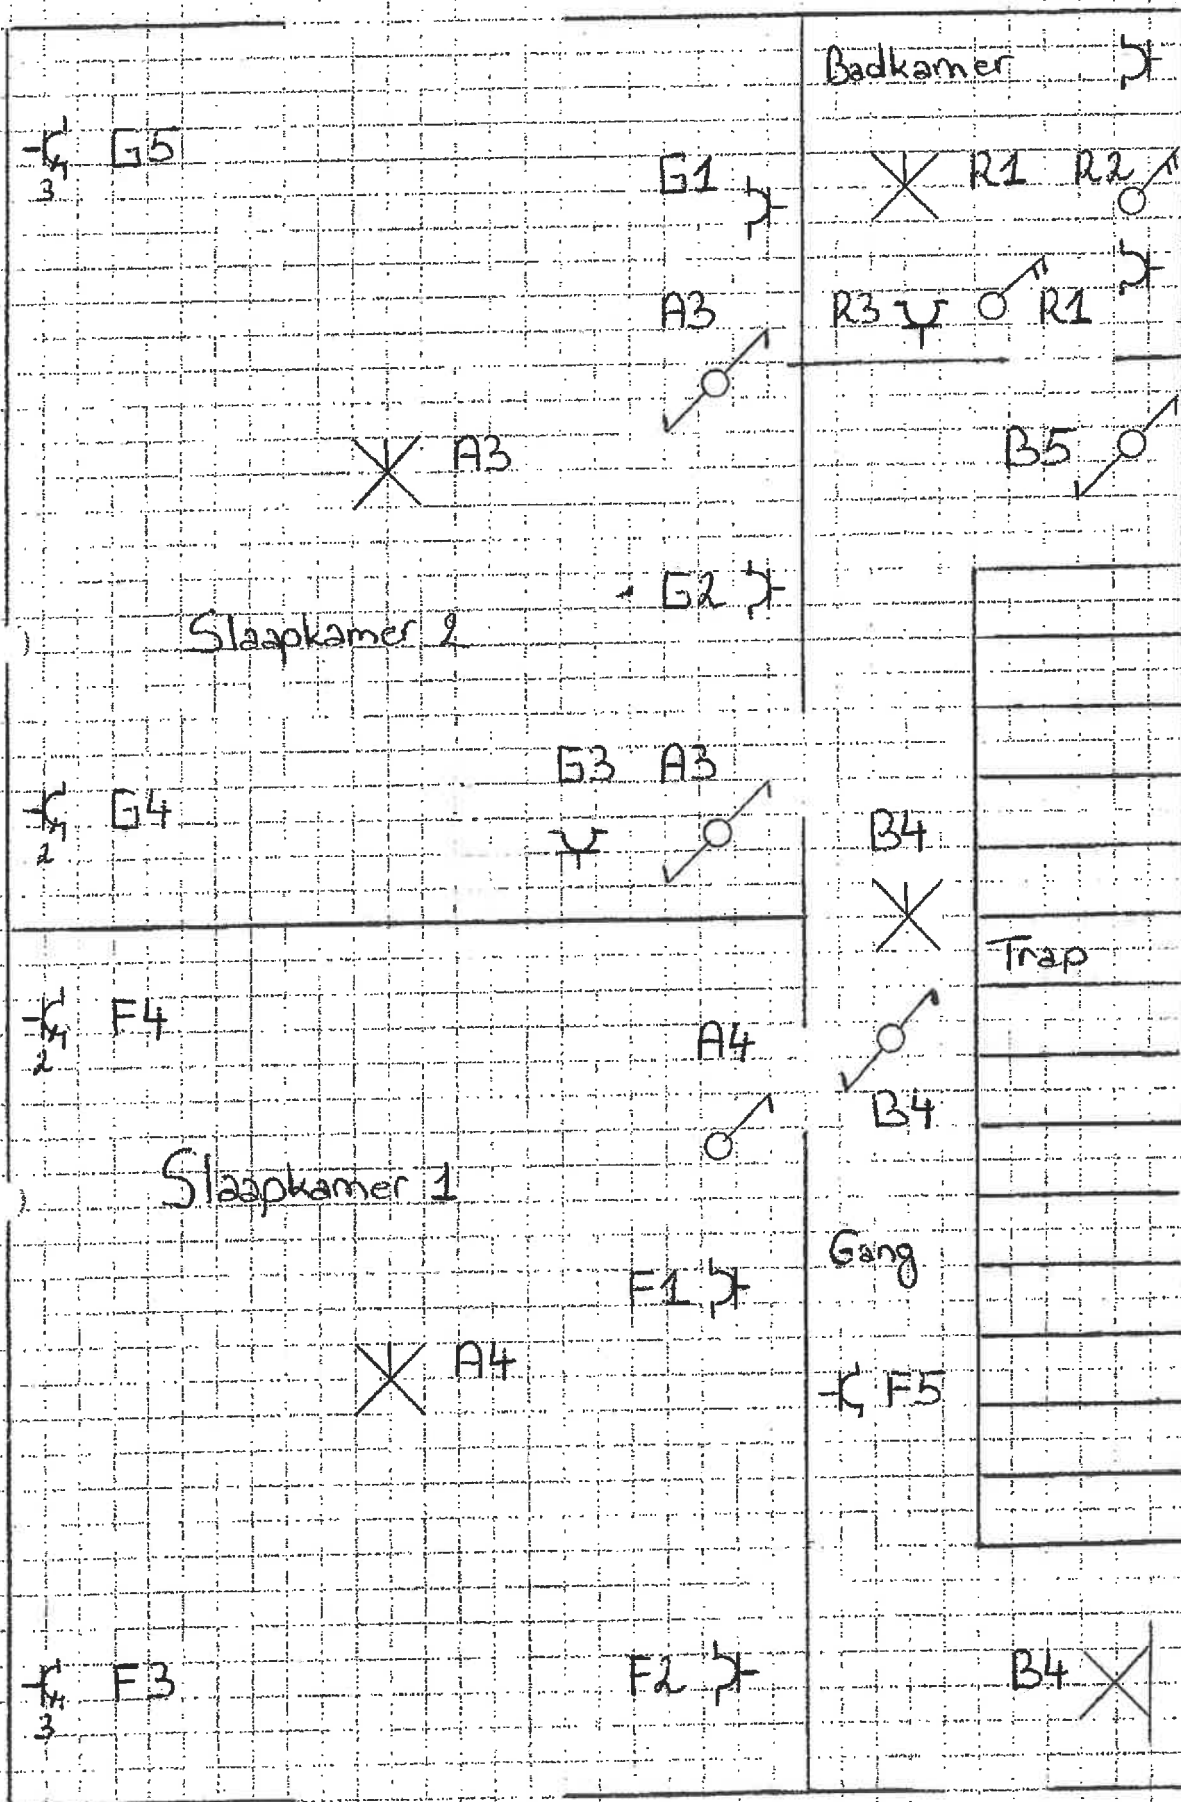 Badkamer
G5
3
G1
R1 R2
A3
R3 R1
A3
B5
G2
Slaapkamer 2
G3 A3
G4
2
B4
Trap
F4
2
A4
B4
Slaapkamer 1
Gang
F1
A4
F5
F3
3
F2
B4